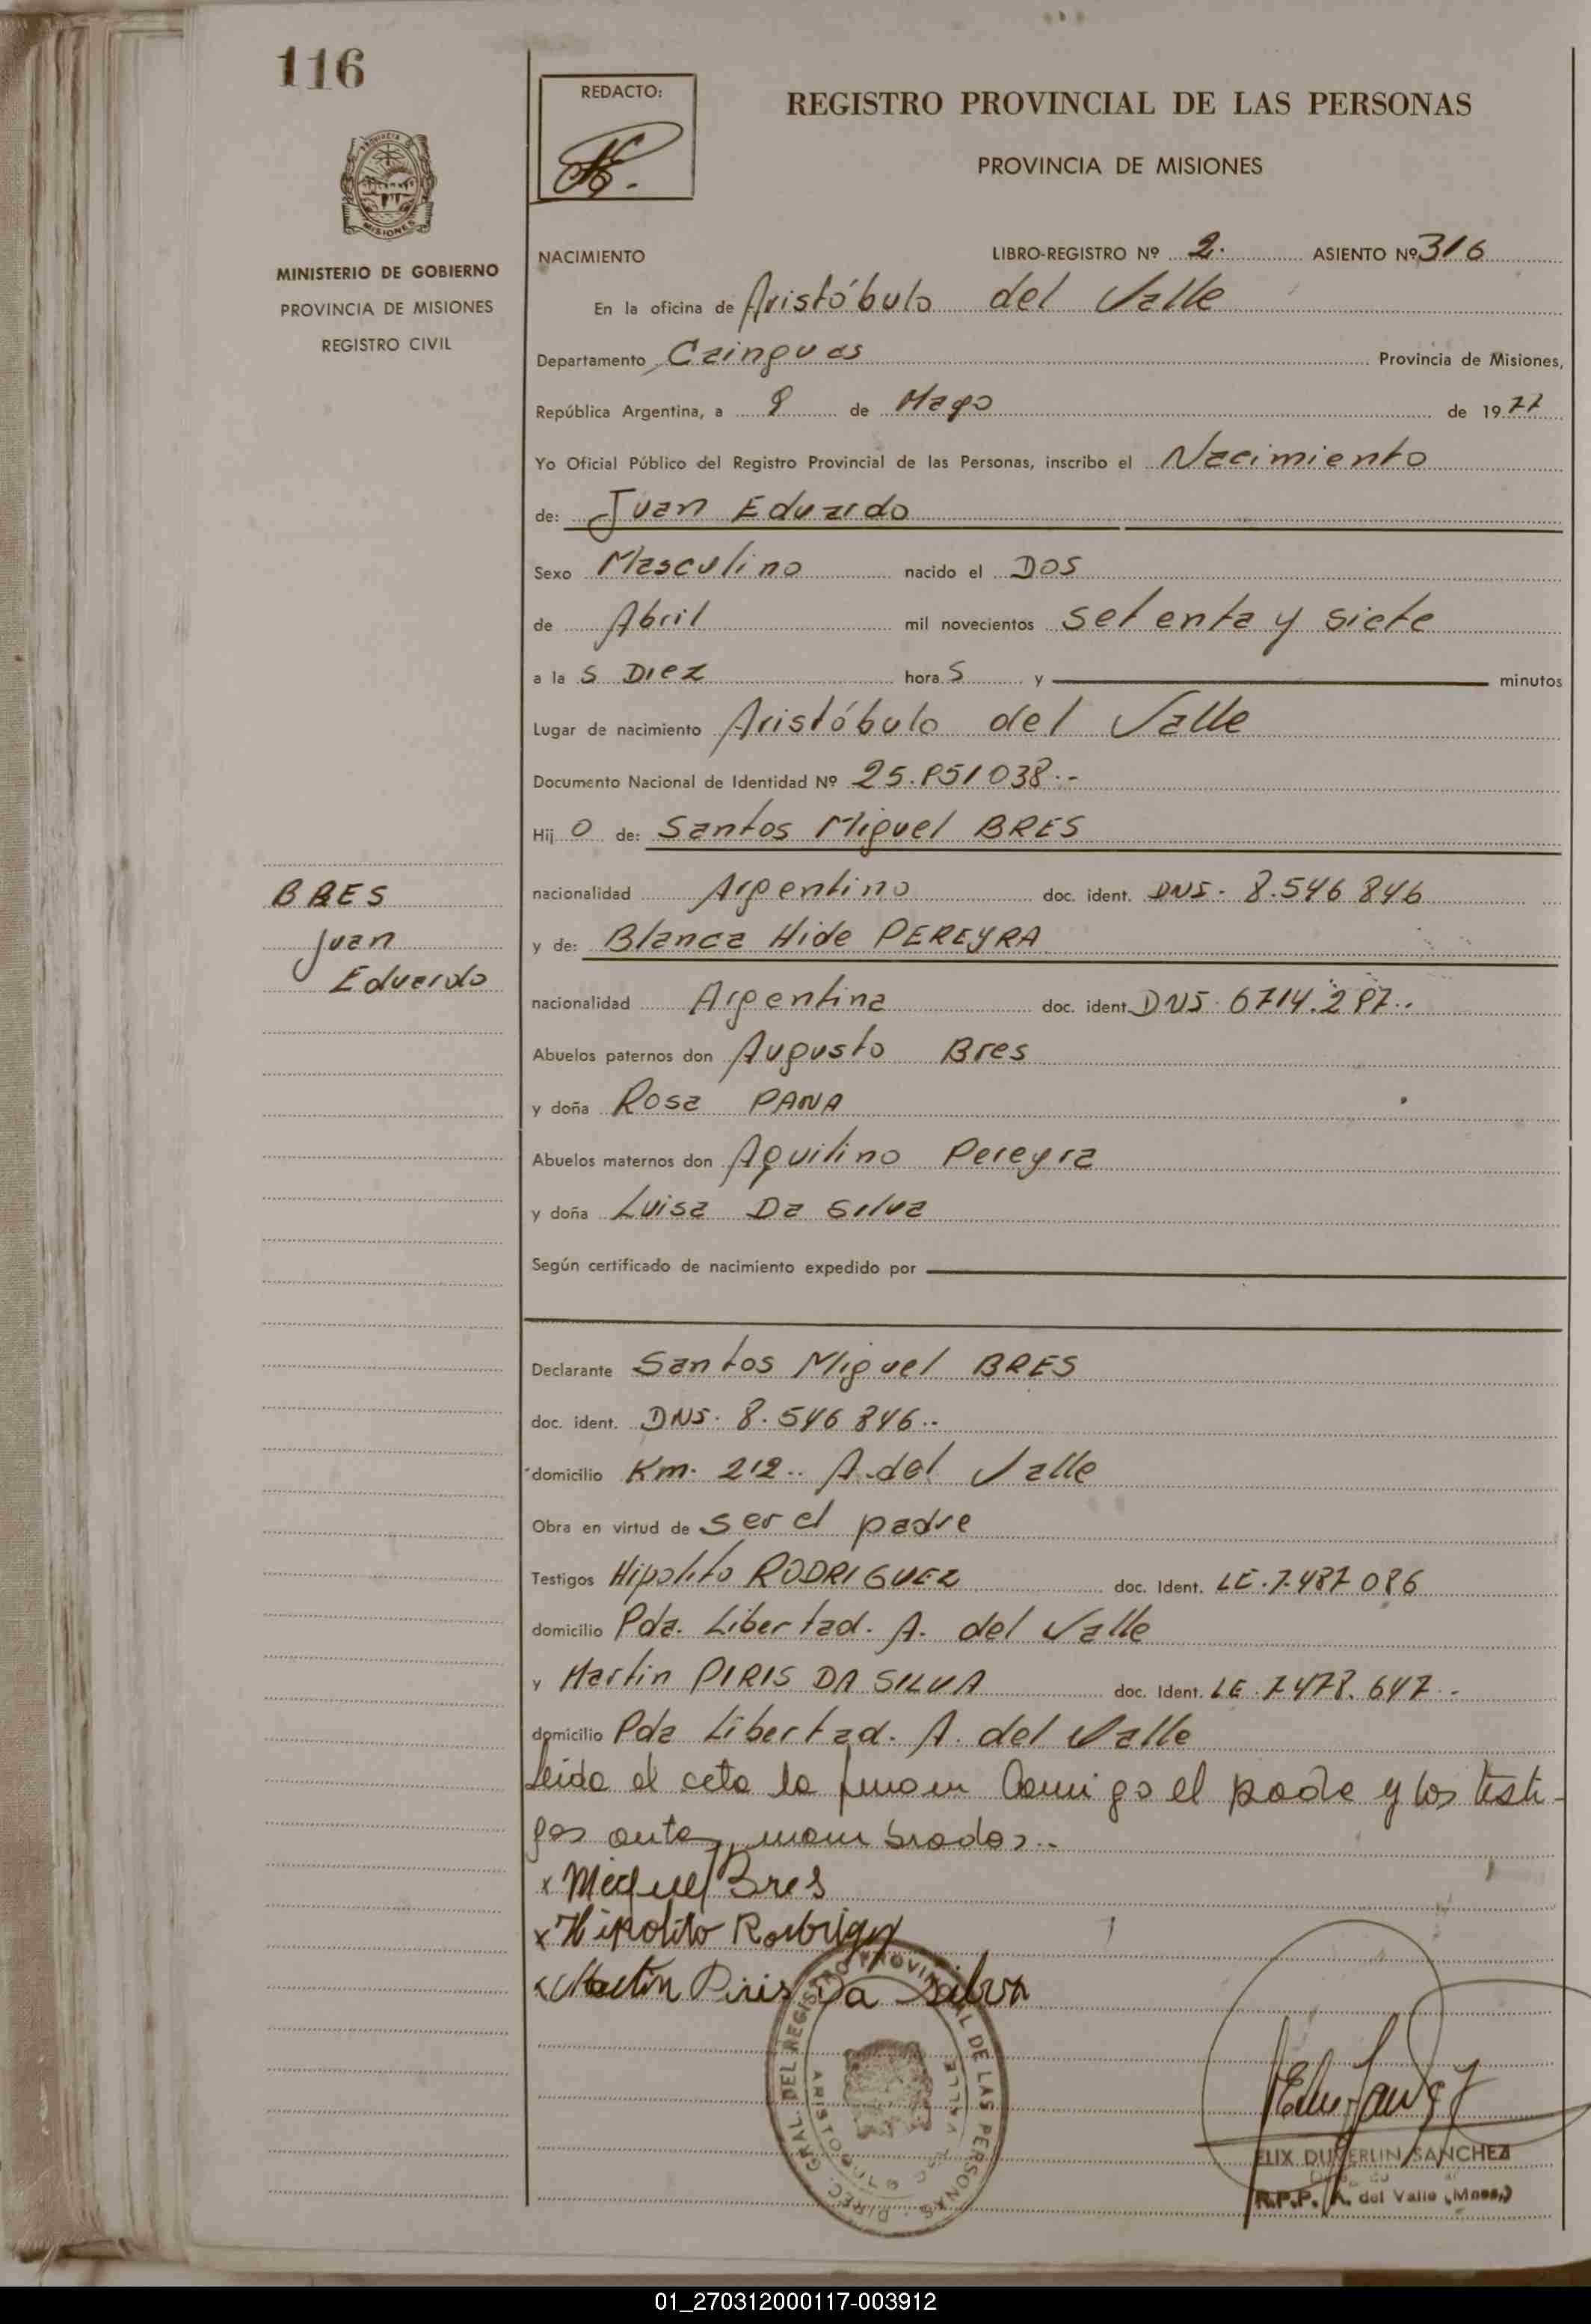 116
REDACTO:
REGISTRO PROVINCIAL DE LAS PERSONAS
PROVINCIA DE MISIONES
MINISTERIO DE GOBIERNO
PROVINCIA DE MISIONES
REGISTRO CIVIL
NACIMIENTO LIBRO-REGISTRO Nº 2. ASIENTO Nº 316
En la oficina de Aristóbulo del Valle
Departamento Cainguas Provincia de Misiones,
República Argentina, a 9 de Mayo de 1977
Yo Oficial Público del Registro Provincial de las Personas, inscribo el Nacimiento
de: Juan Eduardo
Sexo Masculino nacido el Dos
de Abril mil novecientos setenta y siete
a la s Diez hora s y minutos
Lugar de nacimiento Aristóbulo del Valle
Documento Nacional de Identidad Nº 25.851038.-
Hij o de: Santos Miguel BRES
nacionalidad Argentino doc. ident. DNI. 8.546 846
BRES
Juan
Eduardo
y de: Blanca Hide PEREYRA
nacionalidad Argentina doc. ident. DNI 6714.297..
Abuelos paternos don Augusto Bres
y doña Rosa PANA
Abuelos maternos don Aquilino Pereyra
y doña Luisa Da Silva
Según certificado de nacimiento expedido por
Declarante Santos Miguel BRES
doc. ident. DNI. 8.546 846..
domicilio Km. 212.. A. del Valle
Obra en virtud de ser el padre
Testigos Hipolito RODRIGUEZ doc. Ident. LE.7.487 086
domicilio Pda. Libertad. A. del Valle
y Martin PIRIS DA SILVA doc. Ident. LE.7478.647..
domicilio Pda Libertad. A. del Valle
Leida el acta la firman Conmigo el padre y los testi-
gos antes nombrados..
x Miguel Bres
x Hipolito Rodrigez
x Martin Piris Da Silva
DIREC. GRAL. DEL REGISTRO PROVINCIAL DE LAS PERSONAS
ARISTOBULO DEL VALLE
FELIX DUVERLIN SANCHEZ
R.P.P. A. del Valle (Mnes.)
01_270312000117-003912